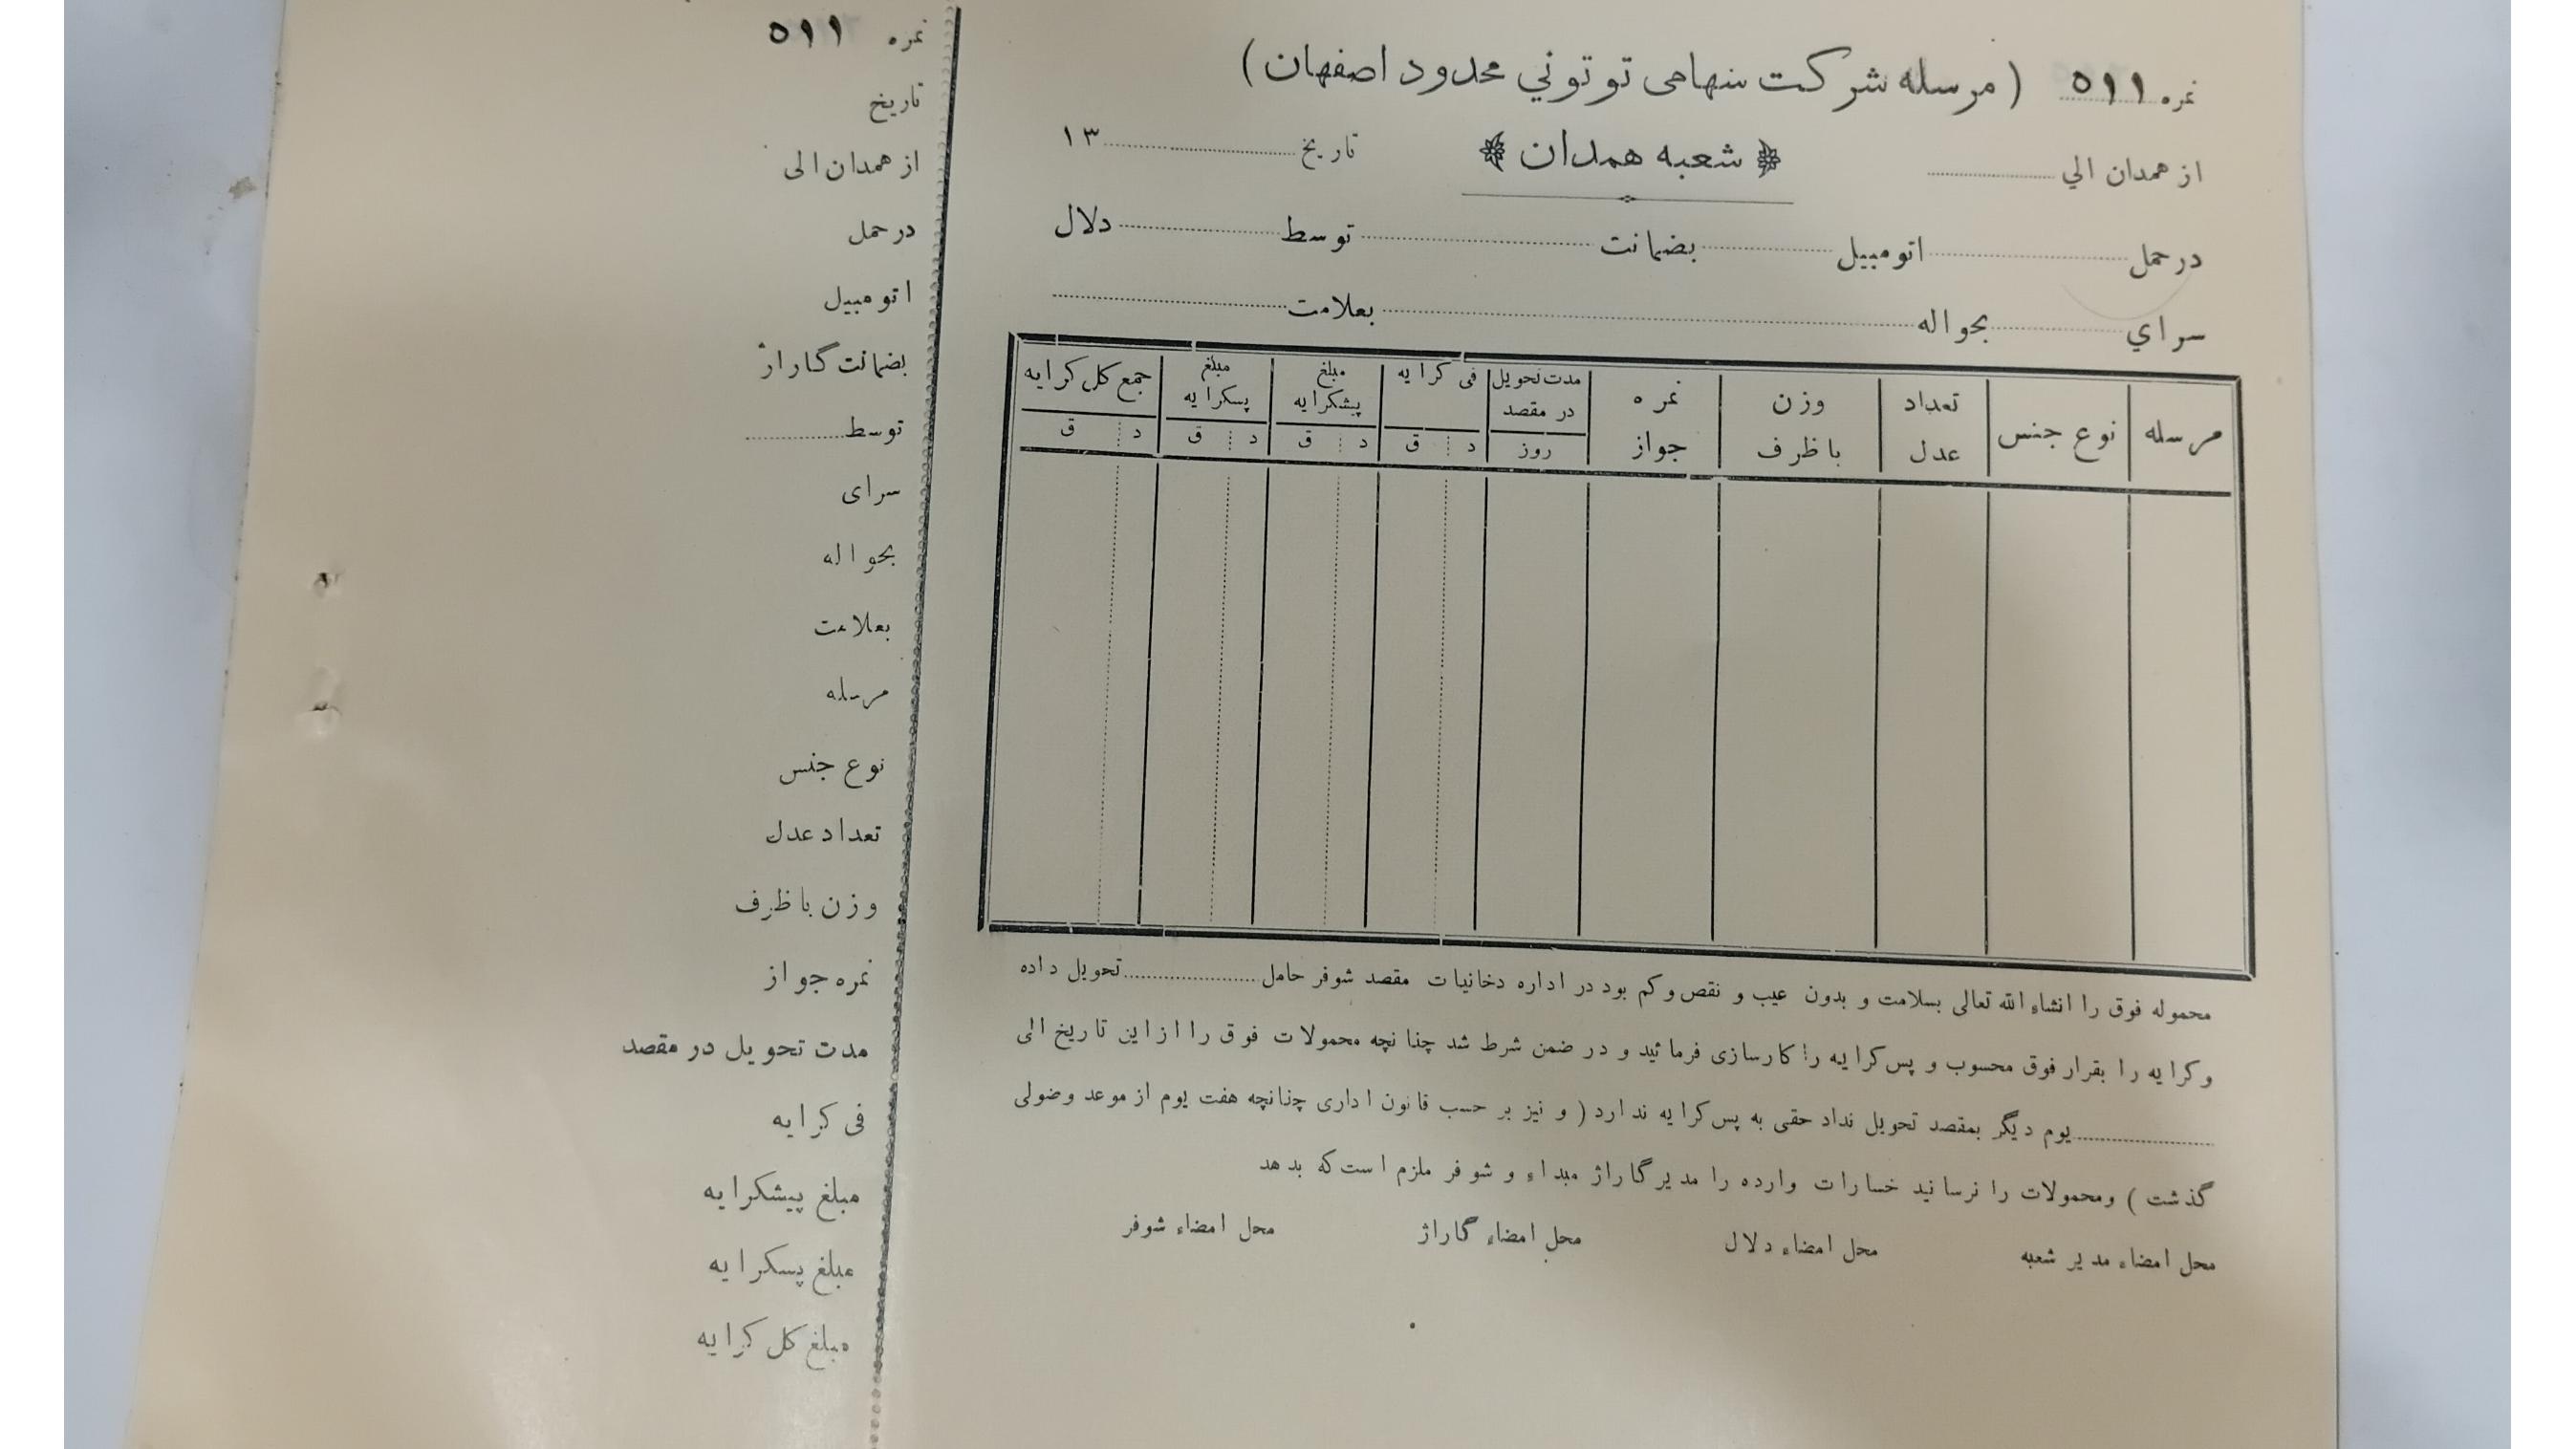 نمره ۵۱۱ ( مرسله شرکت سهامی توتونی محدود اصفهان )
از همدان الی ........ شعبه همدان تاریخ ........ ۱۳
در حمل ........ اتومبیل ........ بضمانت ........ توسط ........ دلال
سرای ........ بحواله ........ بعلامت ........
مرسله نوع جنس تعداد عدل وزن با ظرف نمره جواز مدت تحویل در مقصد روز فی کرایه د ق مبلغ پیشکرایه د ق مبلغ پسکرایه د ق جمع کل کرایه د ق
محموله فوق را انشاءالله تعالی بسلامت و بدون عیب و نقص و کم بود در اداره دخانیات مقصد شوفر حامل ........ تحویل داده
و کرایه را بقرار فوق محسوب و پس کرایه را کارسازی فرمائید و در ضمن شرط شد چنانچه محمولات فوق را از این تاریخ الی
........ یوم دیگر بمقصد تحویل نداد حقی به پس کرایه ندارد ( و نیز بر حسب قانون اداری چنانچه هفت یوم از موعد وضولی
گذشت ) ومحمولات را نرسانید خسارات وارده را مدیر گاراژ مبداء و شوفر ملزم است که بدهد
محل امضاء مدیر شعبه محل امضاء دلال محل امضاء گاراژ محل امضاء شوفر
نمره ۵۱۱
تاریخ
از همدان الی
در حمل
اتومبیل
بضمانت گاراژ
توسط ........
سرای
بحواله
بعلامت
مرسله
نوع جنس
تعداد عدل
وزن با ظرف
نمره جواز
مدت تحویل در مقصد
فی کرایه
مبلغ پیشکرایه
مبلغ پسکرایه
مبلغ کل کرایه